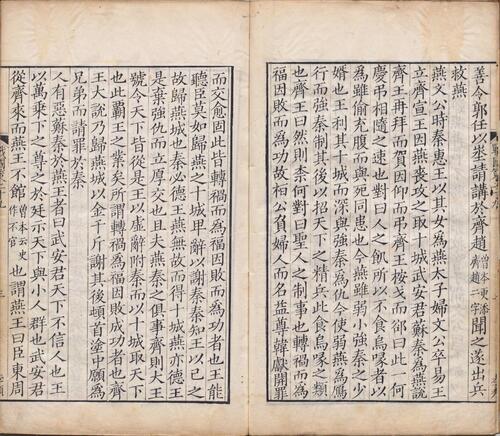 善令郭任以埊請講於齊趙曾本史添齊趙二字聞之遂出兵
救燕
燕文公時秦惠王以其女為燕太子婦文公卒易王
立齊宣王因燕喪攻之取十城武安君蘇秦為燕說
齊王再拜而賀因仰而弔齊王桉戈而郤曰此一何
慶弔相隨之速也對曰人之飢所以不食烏喙者以
為雖偷充腹而與死同患也今燕雖弱小強秦之少
婿也王利其十城而深與強秦為仇今使弱燕為鴈
行而強秦制其後以招天下之精兵此食烏喙之類
也齊王曰然則柰何對曰聖人之制事也轉禍而為
福因敗而為功故桓公負婦人而名益尊韓獻開罪
而交愈固此皆轉禍而為福因敗而為功者也王能
聽臣莫如歸燕之十城卑辭以謝秦秦知王以己之
故歸燕城也秦必德王燕無故而得十城燕亦德王
是棄強仇而立厚交也且夫燕秦之俱事齊則大王
號令天下皆從是王以虛辭附秦而以十城取天下
也此霸王之業矣所謂轉禍為福因敗成功者也齊
王大說乃歸燕城以金千斤謝其後頓首塗中願為
兄弟而請罪於秦
人有惡蘇秦於燕王者曰武安君天下不信人也王
以萬乘下之尊之於廷示天下與小人群也武安君
從齊來而燕王不館曾本云史作不官也謂燕王曰臣東周